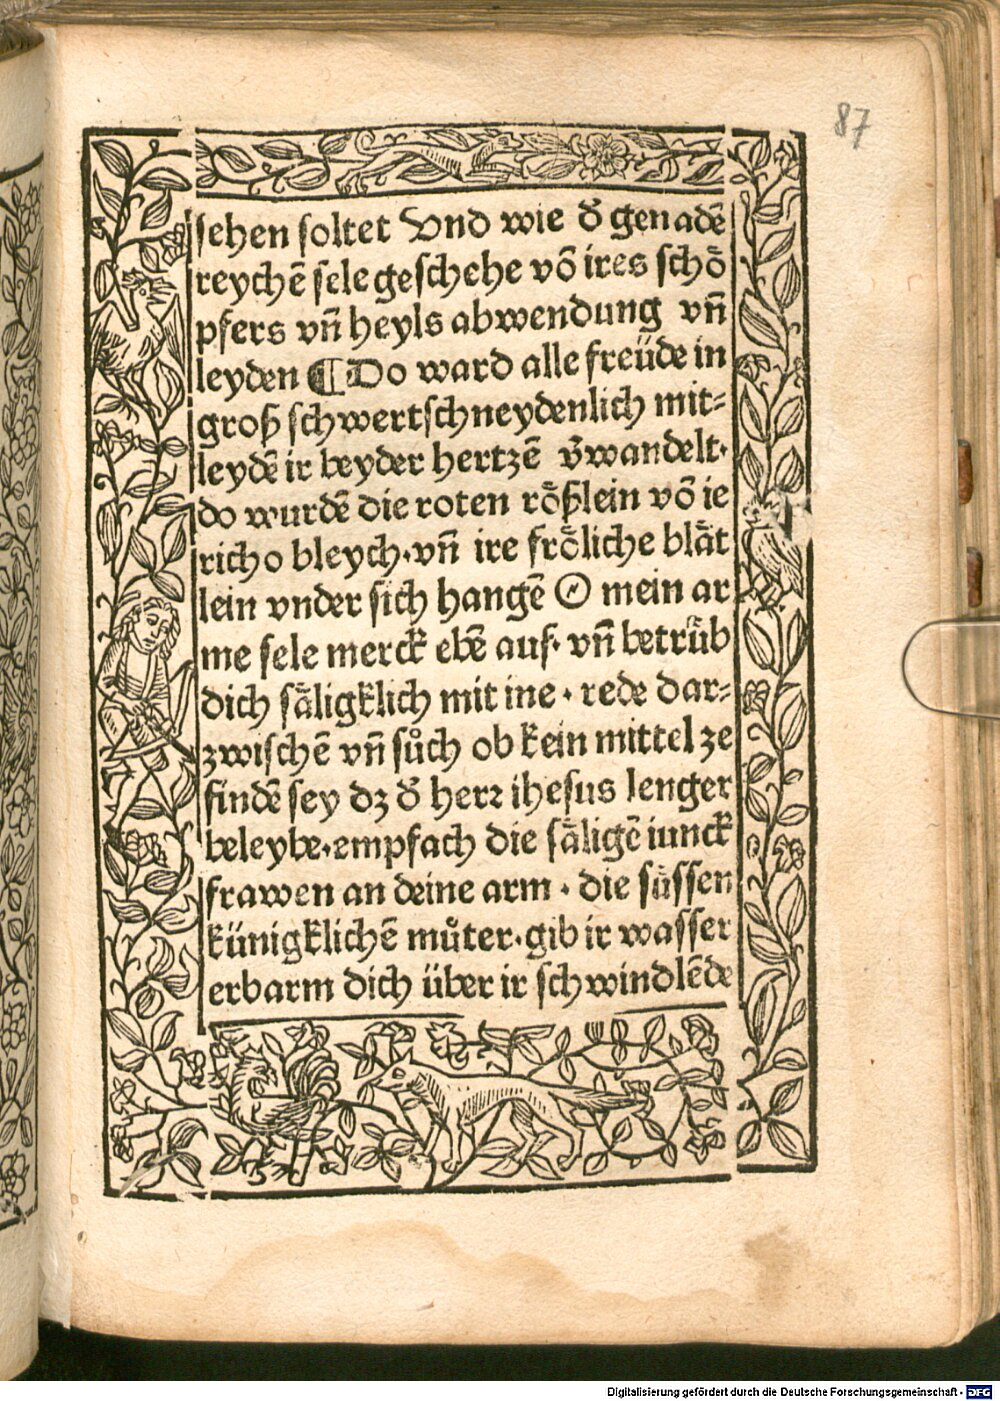 87
sehen soltet Vnd wie d̕ genadē
reychē sele geschehe vō ires schoͤ
pfers vñ heyls abwendung vñ
leyden ¶ Do ward alle freüde in
groß schwertschneydenlich mit⸗
leydē ir beyder hertzē v̕wandelt·
do wurdē die roten roͤßlein vō ie
richo bleych·vñ ire froͤliche blaͤt
lein vnder sich hangē O mein ar
me sele merck ebē auf· vñ betruͤb
dich saͤligklich mit ine · rede dar⸗
zwischē vñ suͦch ob kein mittel ze
findē sey dz d̕ herꝛ ihesus lenger
beleybe·empfach die saͤligē iunck
frawen an deine arm · die suͤssen
künigklichē muͦter·gib ir wasser
erbarm dich über ir schwindlēde
Digitalisierung gefördert durch die Deutsche Forschungsgemeinschaft - DFG